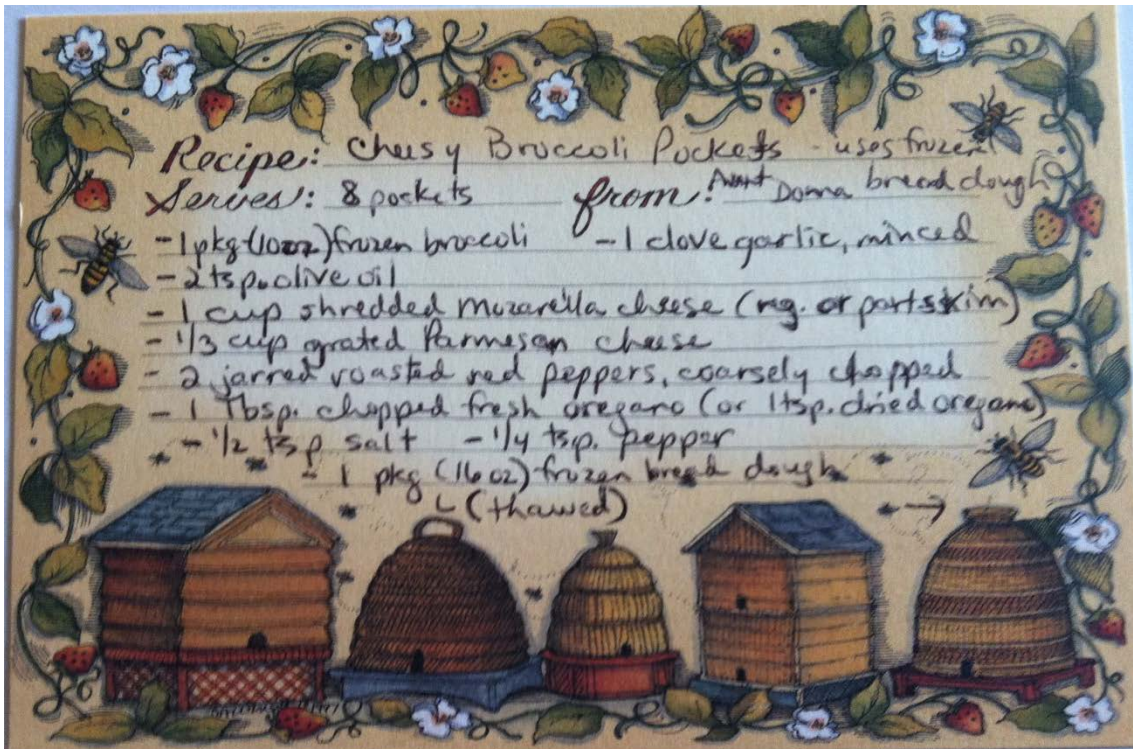 Recipe: Cheesy Broccoli Pockets - uses frozen
Serves: 8 pockets from: Aunt Donna bread dough
- 1 pkg (10oz) frozen broccoli - 1 clove garlic, minced
- 2 tsp. olive oil
- 1 cup shredded Mozarella cheese (reg. or part skim)
- 1/3 cup grated Parmesan cheese
- 2 jarred roasted red peppers, coarsely chopped
- 1 Tbsp. chopped fresh oregano (or 1 tsp. dried oregano)
- 1/2 tsp salt - 1/4 tsp. pepper
- 1 pkg (16 oz) frozen bread dough
(thawed) →